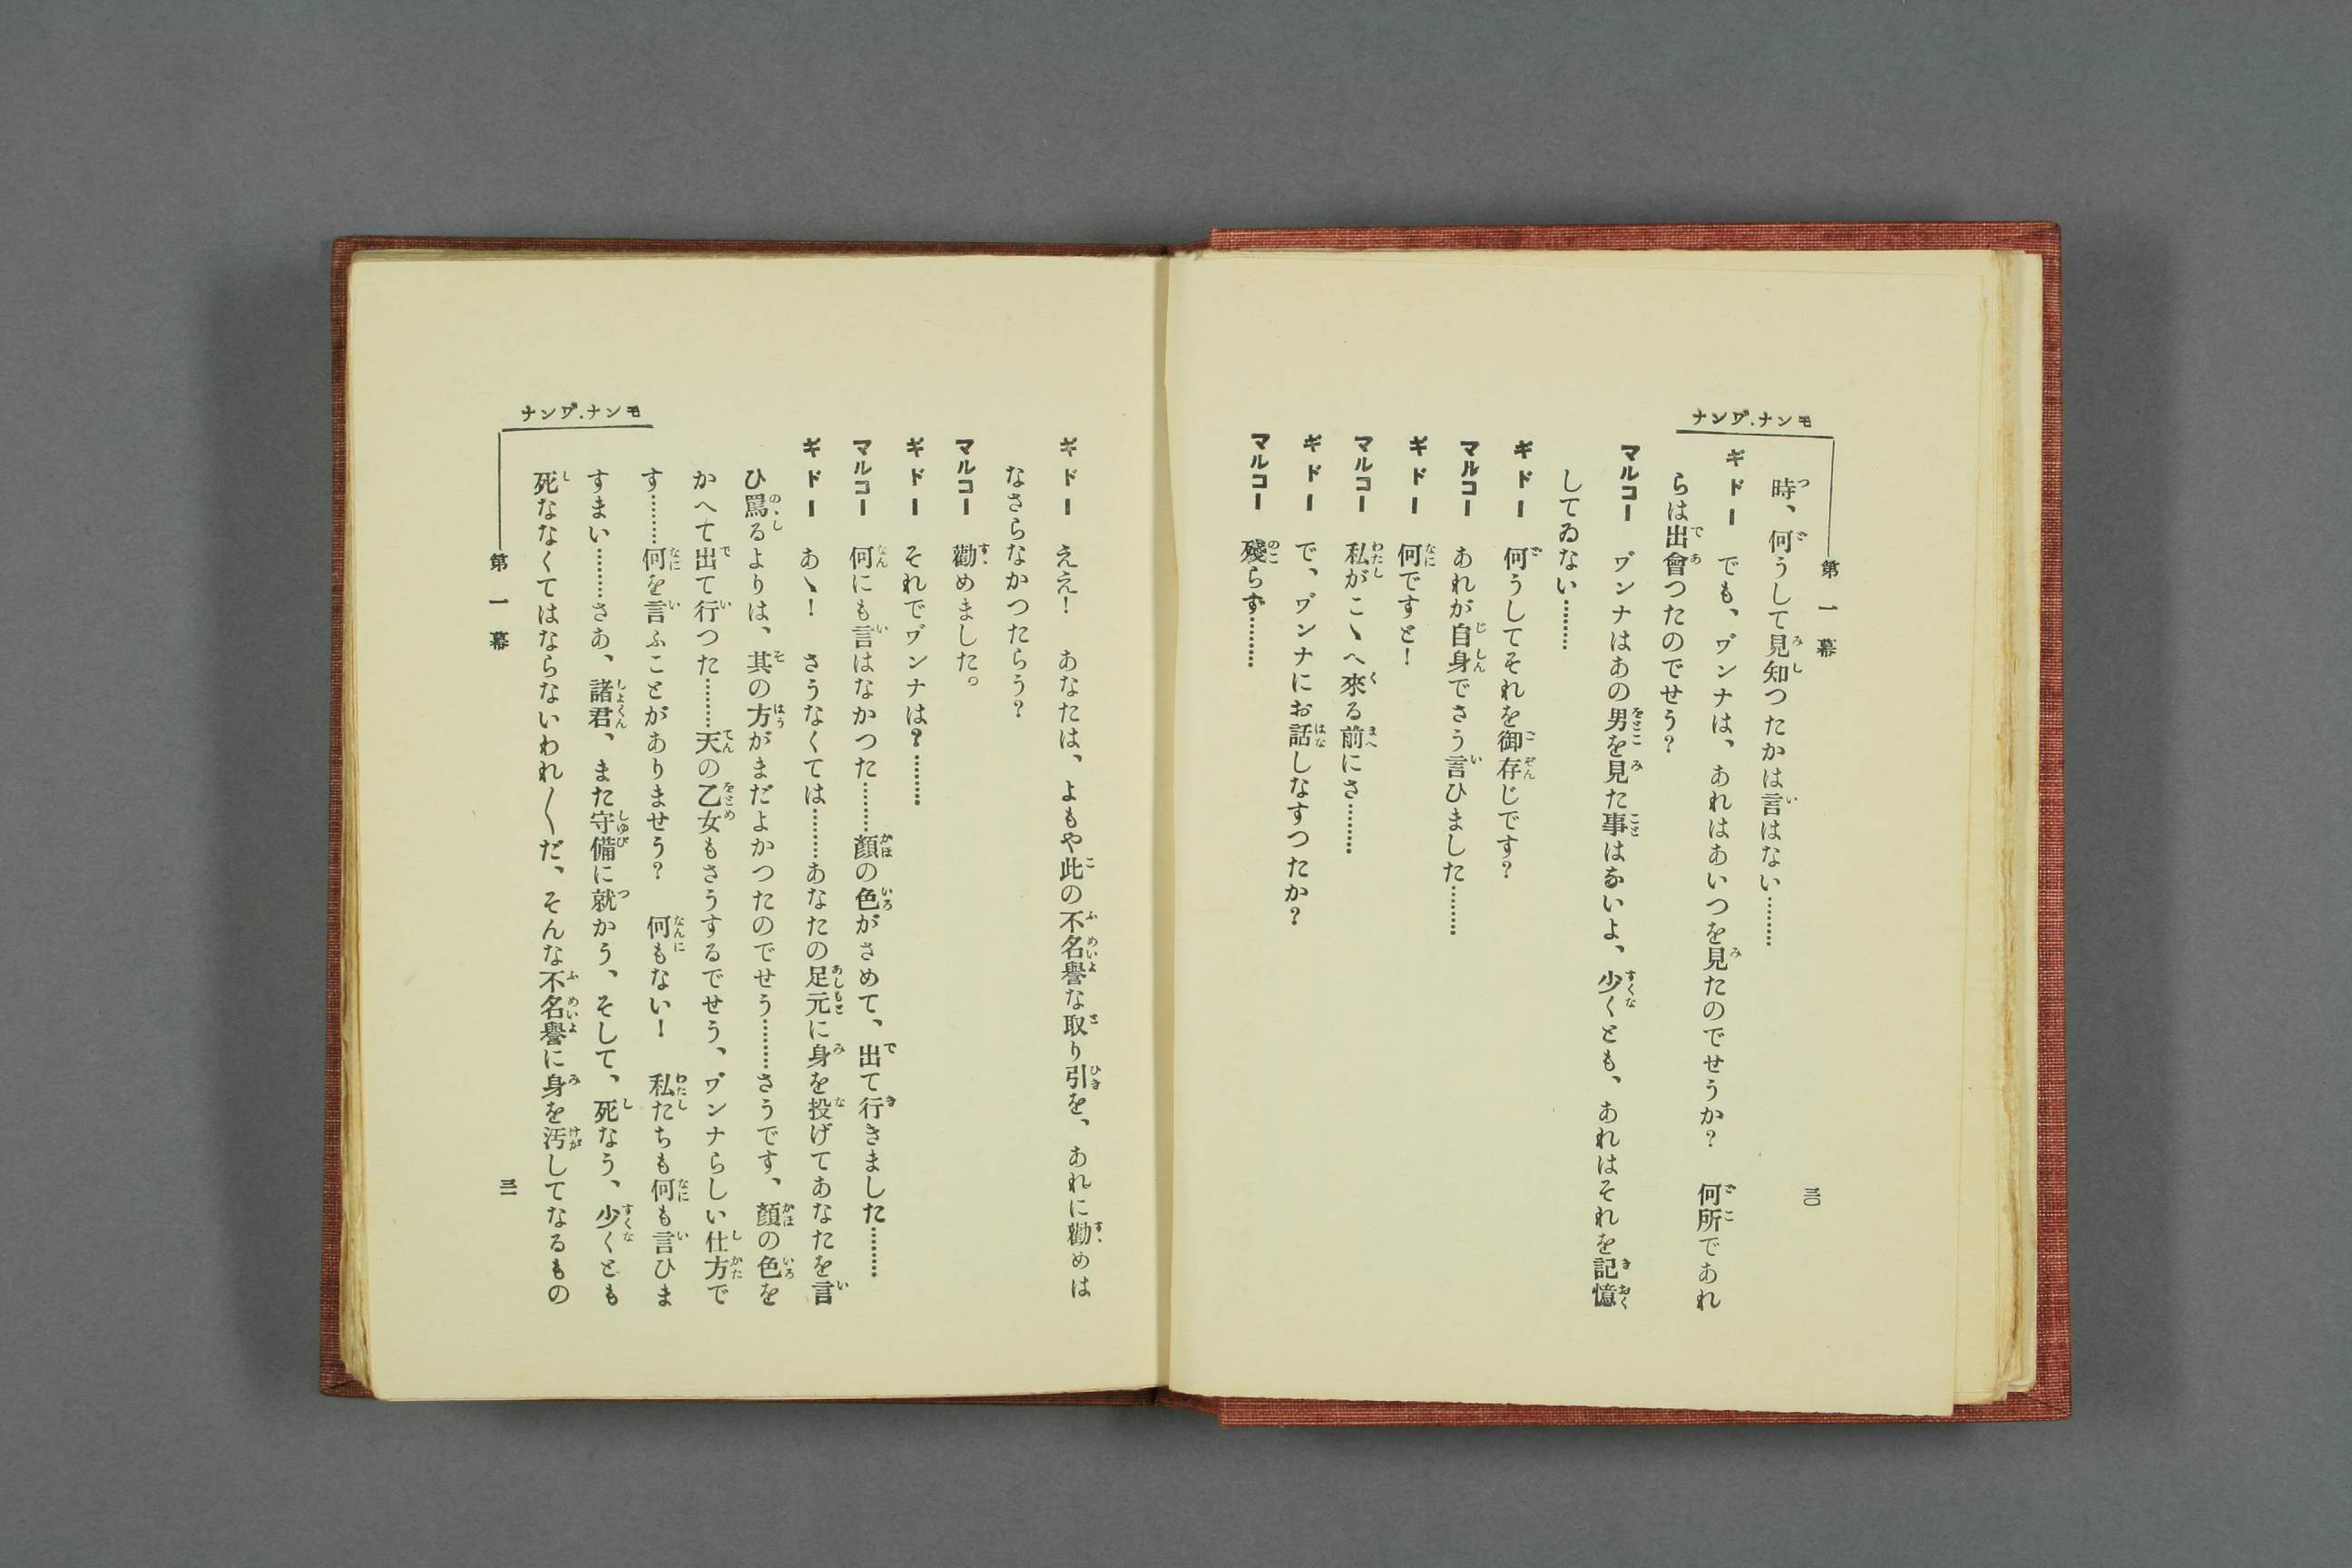 モンナ.ヷンナ
第一幕
三〇
時、何うして見知つたかは言はない………
ギドー　でも、ヷンナは、あれはあいつを見たのでせうか？　何所であれ
らは出會つたのでせう？
マルコー　ヷンナはあの男を見た事はないよ、少くとも、あれはそれを記憶
してゐない………
ギドー　何うしてそれを御存じです？
マルコー　あれが自身でさう言ひました………
ギドー　何ですと！
マルコー　私がこゝへ來る前にさ………
ギドー　で、ヷンナにお話しなすつたか？
マルコー　殘らず………
モンナ.ヷンナ
ギドー　ええ！　あなたは、よもや此の不名譽な取り引を、あれに勸めは
なさらなかつたらう？
マルコー　勸めました。
ギドー　それでヷンナは？………
マルコー　何にも言はなかつた………顏の色がさめて、出て行きました………
ギドー　あゝ！　さうなくては………あなたの足元に身を投げてあなたを言
ひ罵るよりは、其の方がまだよかつたのでせう………さうです、顏の色を
かへて出て行つた………天の乙女もさうするでせう、ヷンナらしい仕方で
す………何を言ふことがありませう？　何もない！　私たちも何も言ひま
すまい………さあ、諸君、また守備に就かう、そして、死なう、少くとも
死ななくてはならないわれ〱だ、そんな不名譽に身を汚してなるもの
第一幕
三一